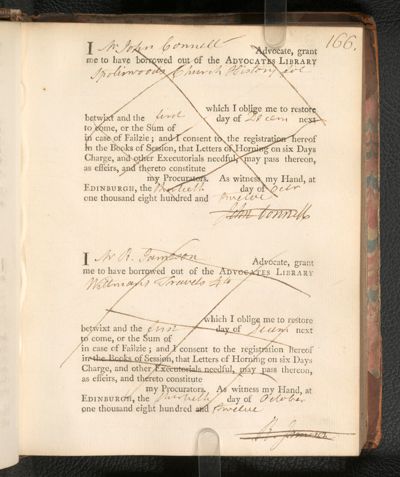 166.
I Mr John Connell Advocate, grant
me to have borrowed out of the ADVOCATES LIBRARY
Spotiswoods Church History fol
which I oblige me to restore
betwixt and the first day of Decem next
to come, or the Sum of
in case of Failzie; and I consent to the registration hereof
in the Books of Session, that Letters of Horning on six Days
Charge, and other Executorials needful, may pass thereon,
as effeirs, and thereto constitute
my Procurators. As witness my Hand, at
EDINBURGH, the day of Octr
one thousand eight hundred and twelve
John Connell
I Mr R. Jameson Advocate, grant
me to have borrowed out of the ADVOCATES LIBRARY
Wittmans Travels 4to
which I oblige me to restore
betwixt and the first day of Decem next
to come, or the Sum of
in case of Failzie; and I consent to the registration hereof
in the Books of Session, that Letters of Horning on six Days
Charge, and other Executorials needful, may pass thereon,
as effeirs, and thereto constitute
my Procurators. As witness my Hand, at
EDINBURGH, the day of October
one thousand eight hundred and twelve
R. Jameson